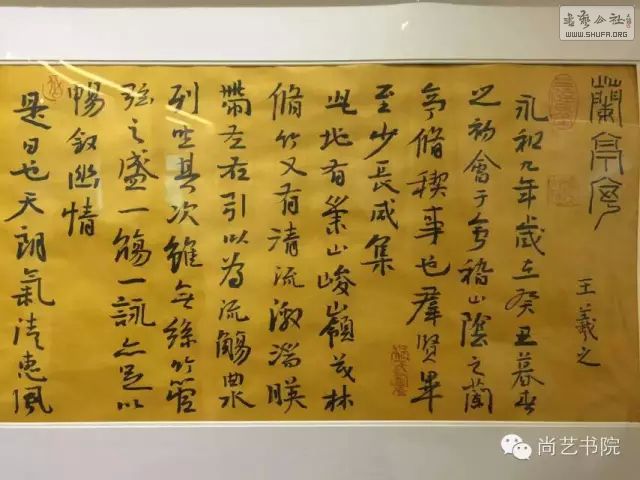 蘭亭序
王羲之
永和九年歲在癸丑暮春
之初會于會稽山陰之蘭
亭脩稧事也羣賢畢
至少長咸集
此地有崇山峻嶺茂林
脩竹又有清流激湍暎
帶左右引以為流觴曲水
列坐其次雖無絲竹管
弦之盛一觴一詠亦足以
暢敘幽情
是日也天朗氣清惠風
书艺公社
WWW.SHUFA.ORG
尚艺书院